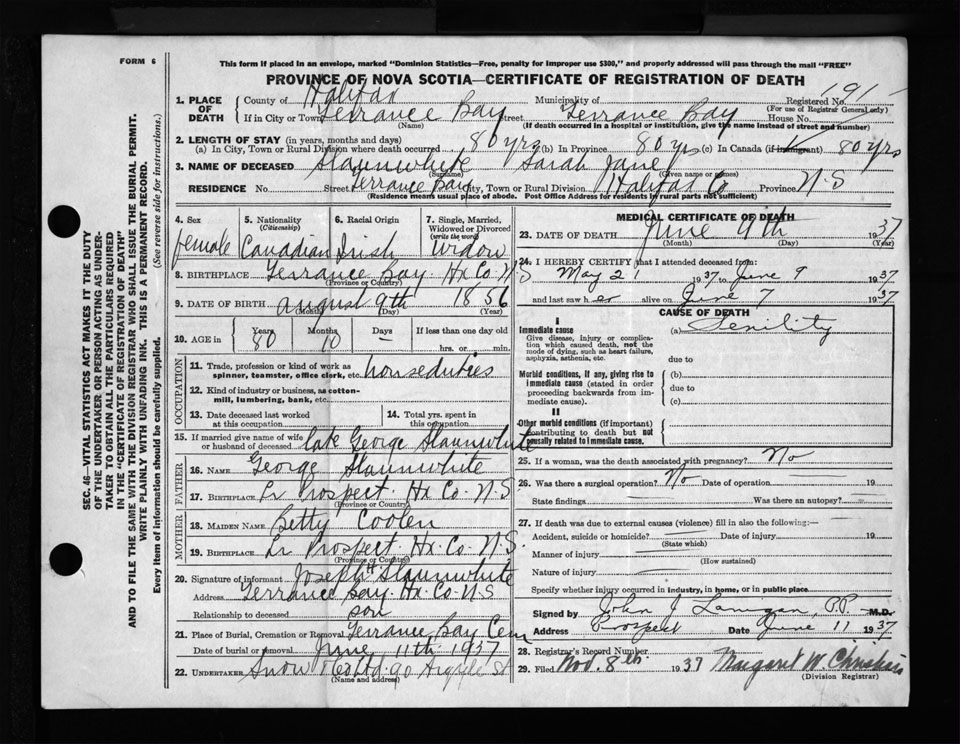 FORM 6
This form if placed in an envelope, marked "Dominion Statistics—Free, penalty for improper use $300," and properly addressed will pass through the mail "FREE"
PROVINCE OF NOVA SCOTIA—CERTIFICATE OF REGISTRATION OF DEATH
191
1. PLACE OF DEATH County of Halifax Municipality of Registered No.
(For use of Registrar General only)
If in City or Town Terrance Bay Street Terrance Bay House No.
(Name) (If death occurred in a hospital or institution, give the name instead of street and number)
2. LENGTH OF STAY (in years, months and days)
(a) In City, Town or Rural Division where death occurred 80 yrs (b) In Province 80 yrs (c) In Canada (if immigrant) 80 yrs
3. NAME OF DECEASED Slaunwhite Sarah Jane
(Surname) (Given name or names)
RESIDENCE No. Street Terrance Bay City, Town or Rural Division Halifax Co Province N-S
(Residence means usual place of abode. Post Office Address for residents in rural parts not sufficient)
4. Sex 5. Nationality 6. Racial Origin 7. Single, Married, Widowed or Divorced
(Citizenship) (write the word)
female Canadian Irish Widow
8. BIRTHPLACE Terrance Bay Hx Co N-S
(Province or Country)
9. DATE OF BIRTH august 9th 1856
(Month) (Day) (Year)
10. AGE in Years Months Days If less than one day old
80 10 — hrs. or min.
OCCUPATION
11. Trade, profession or kind of work as spinner, teamster, office clerk, etc. houseduties
12. Kind of industry or business, as cotton-mill, lumbering, bank, etc.
13. Date deceased last worked at this occupation 14. Total yrs. spent in this occupation
15. If married give name of wife or husband of deceased late George Slaunwhite
FATHER
16. NAME George Slaunwhite
17. BIRTHPLACE Lr Prospect Hx Co N-S
(Province or Country)
MOTHER
18. MAIDEN NAME Betty Coolen
19. BIRTHPLACE Lr Prospect Hx Co N.S.
(Province or Country)
20. Signature of informant Joseph H Slaunwhite
Address Terrance Bay Hx Co N-S
Relationship to deceased son
21. Place of Burial, Cremation or Removal Terrance Bay Cem
Date of burial or removal June 11th 1937
22. UNDERTAKER Snow & Co Ltd 90 Argyle St
(Name and address)
MEDICAL CERTIFICATE OF DEATH
23. DATE OF DEATH June 9th 1937
(Month) (Day) (Year)
24. I HEREBY CERTIFY that I attended deceased from:
May 21 1937 to June 9 1937
and last saw her alive on June 7 1937
CAUSE OF DEATH
I
Immediate cause (a) Senility
Give disease, injury or complication which caused death, not the mode of dying, such as heart failure, asphyxia, asthenia, etc.
due to
Morbid conditions, if any, giving rise to immediate cause (stated in order proceeding backwards from immediate cause).
(b)
due to
(c)
II
Other morbid conditions (if important) contributing to death but not causally related to immediate cause.
25. If a woman, was the death associated with pregnancy? No
26. Was there a surgical operation? No Date of operation 19
State findings Was there an autopsy?
27. If death was due to external causes (violence) fill in also the following:—
Accident, suicide or homicide? Date of injury 19
(State which)
Manner of injury
(How sustained)
Nature of injury
Specify whether injury occurred in industry, in home, or in public place
Signed by John J Lanigan, P.P. M.D.
Address Prospect Date June 11 1937
28. Registrar's Record Number
29. Filed Nov. 8th 1937 Margaret W.
(Division Registrar)
SEC. 46—VITAL STATISTICS ACT MAKES IT THE DUTY
OF THE UNDERTAKER OR PERSON ACTING AS UNDER-
TAKER TO OBTAIN ALL THE PARTICULARS REQUIRED
IN THE "CERTIFICATE OF REGISTRATION OF DEATH"
AND TO FILE THE SAME WITH THE DIVISION REGISTRAR WHO SHALL ISSUE THE BURIAL PERMIT.
WRITE PLAINLY WITH UNFADING INK. THIS IS A PERMANENT RECORD.
Every item of information should be carefully supplied. (See reverse side for instructions.)